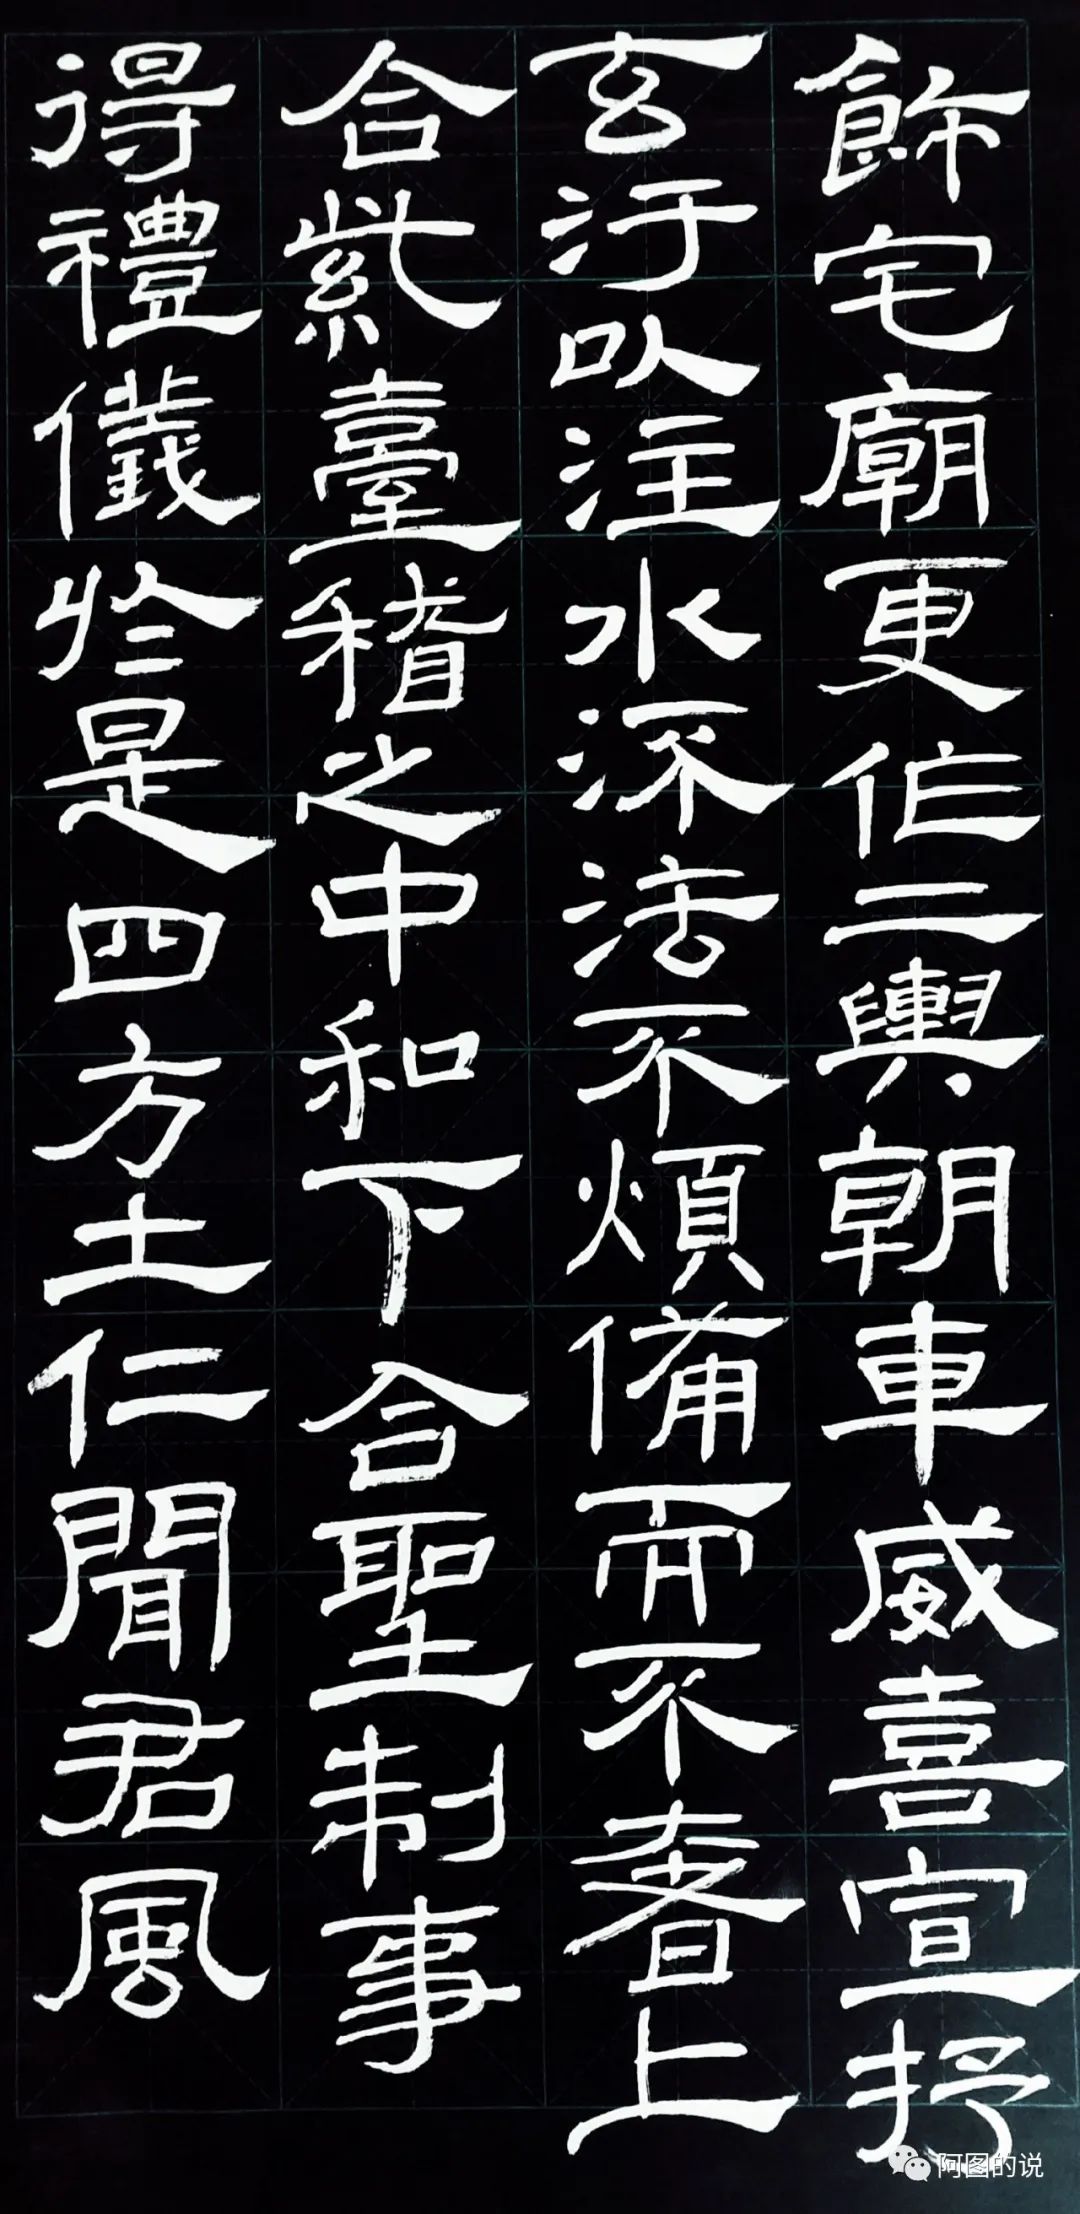 飾宅廟更作二輿朝車威喜宣抒
玄汙以注水流法不煩備而不奢上
合紫臺稽之中和下合聖制事
得禮儀於是四方土仁聞君風
阿图的说